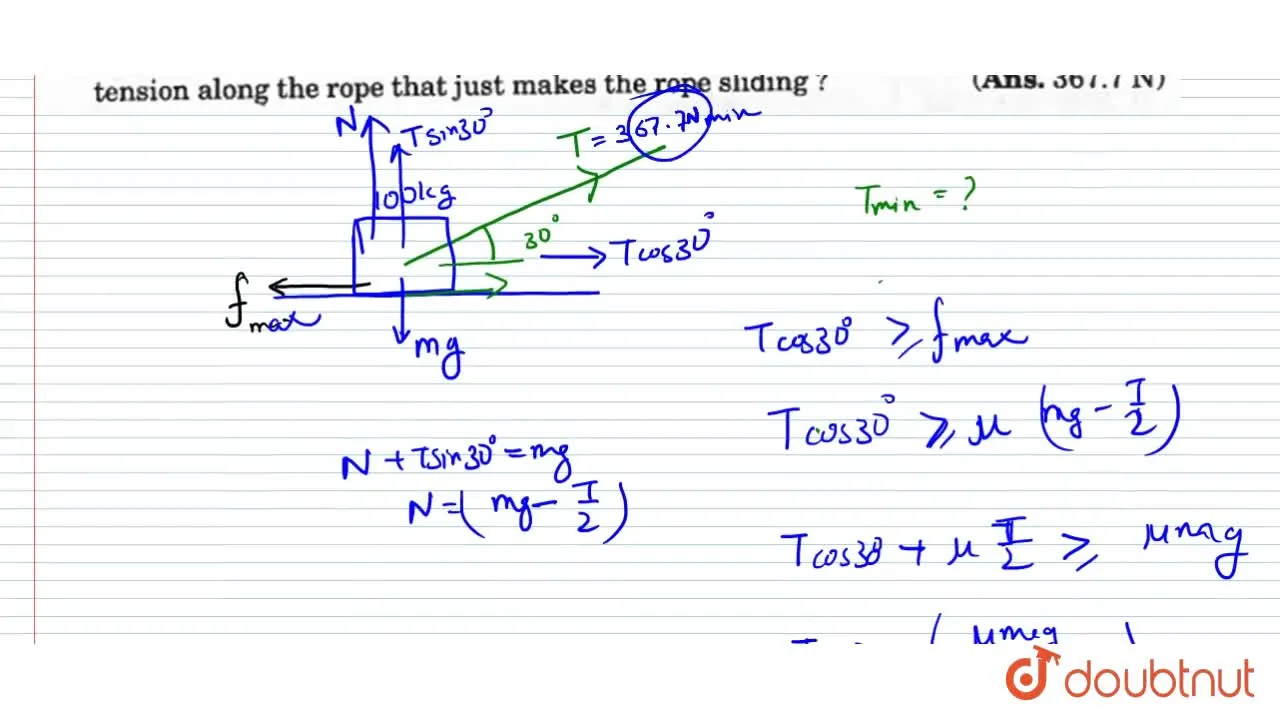 tension along the rope that just makes the rope sliding ? (Ans. 367.7 N)
N
T sin30°
T = 367.7N min
100kg
Tmin = ?
30°
Tcos30°
fmax
mg
Tcos30° ≥ fmax
Tcos30° ≥ μ (mg - T/2)
N + Tsin30° = mg
N = (mg - T/2)
Tcos30 + μ T/2 ≥ μmg
doubtnut